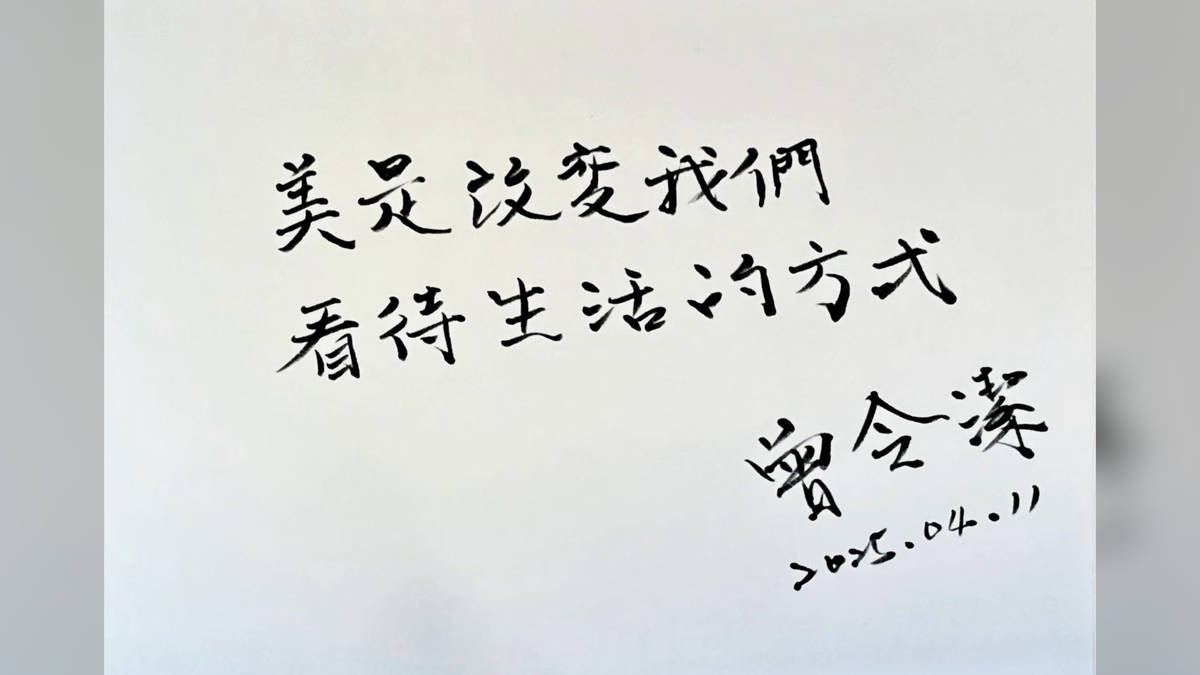 美是改变我們
看待生活的方式
曾令潔
2025.04.11